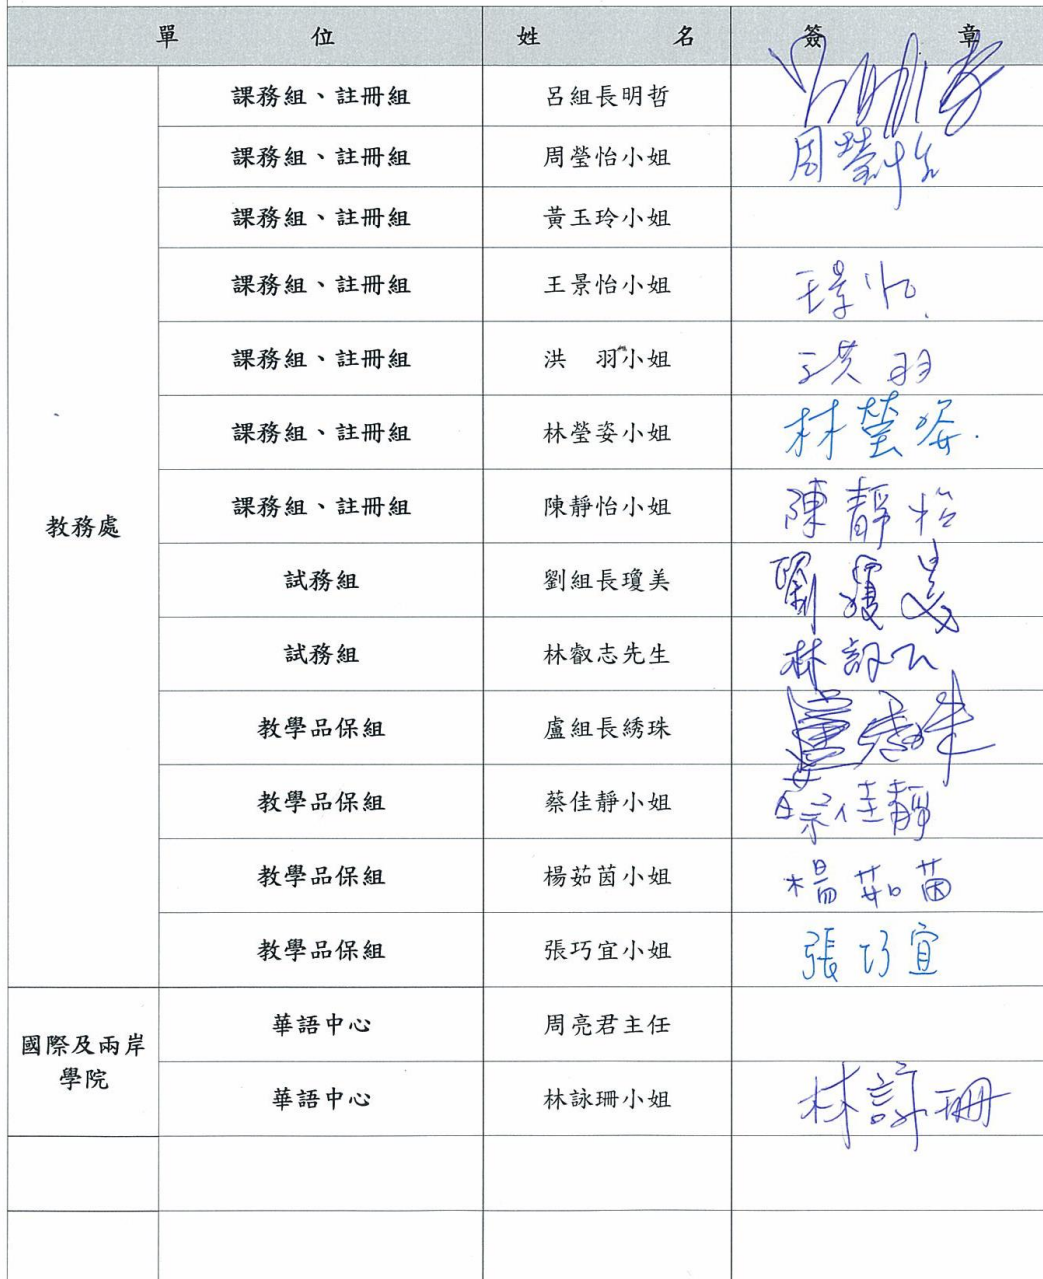 單 位 姓 名 簽 章
教務處
課務組、註冊組 呂組長明哲
課務組、註冊組 周瑩怡小姐 周瑩怡
課務組、註冊組 黃玉玲小姐
課務組、註冊組 王景怡小姐 王景怡
課務組、註冊組 洪 羽小姐 洪羽
課務組、註冊組 林瑩姿小姐 林瑩姿
課務組、註冊組 陳靜怡小姐 陳靜怡
試務組 劉組長瓊美 劉瓊美
試務組 林叡志先生 林
教學品保組 盧組長綉珠
教學品保組 蔡佳靜小姐 蔡佳靜
教學品保組 楊茹茵小姐 楊茹茵
教學品保組 張巧宜小姐 張巧宜
國際及兩岸
學院
華語中心 周亮君主任
華語中心 林詠珊小姐 林詠珊